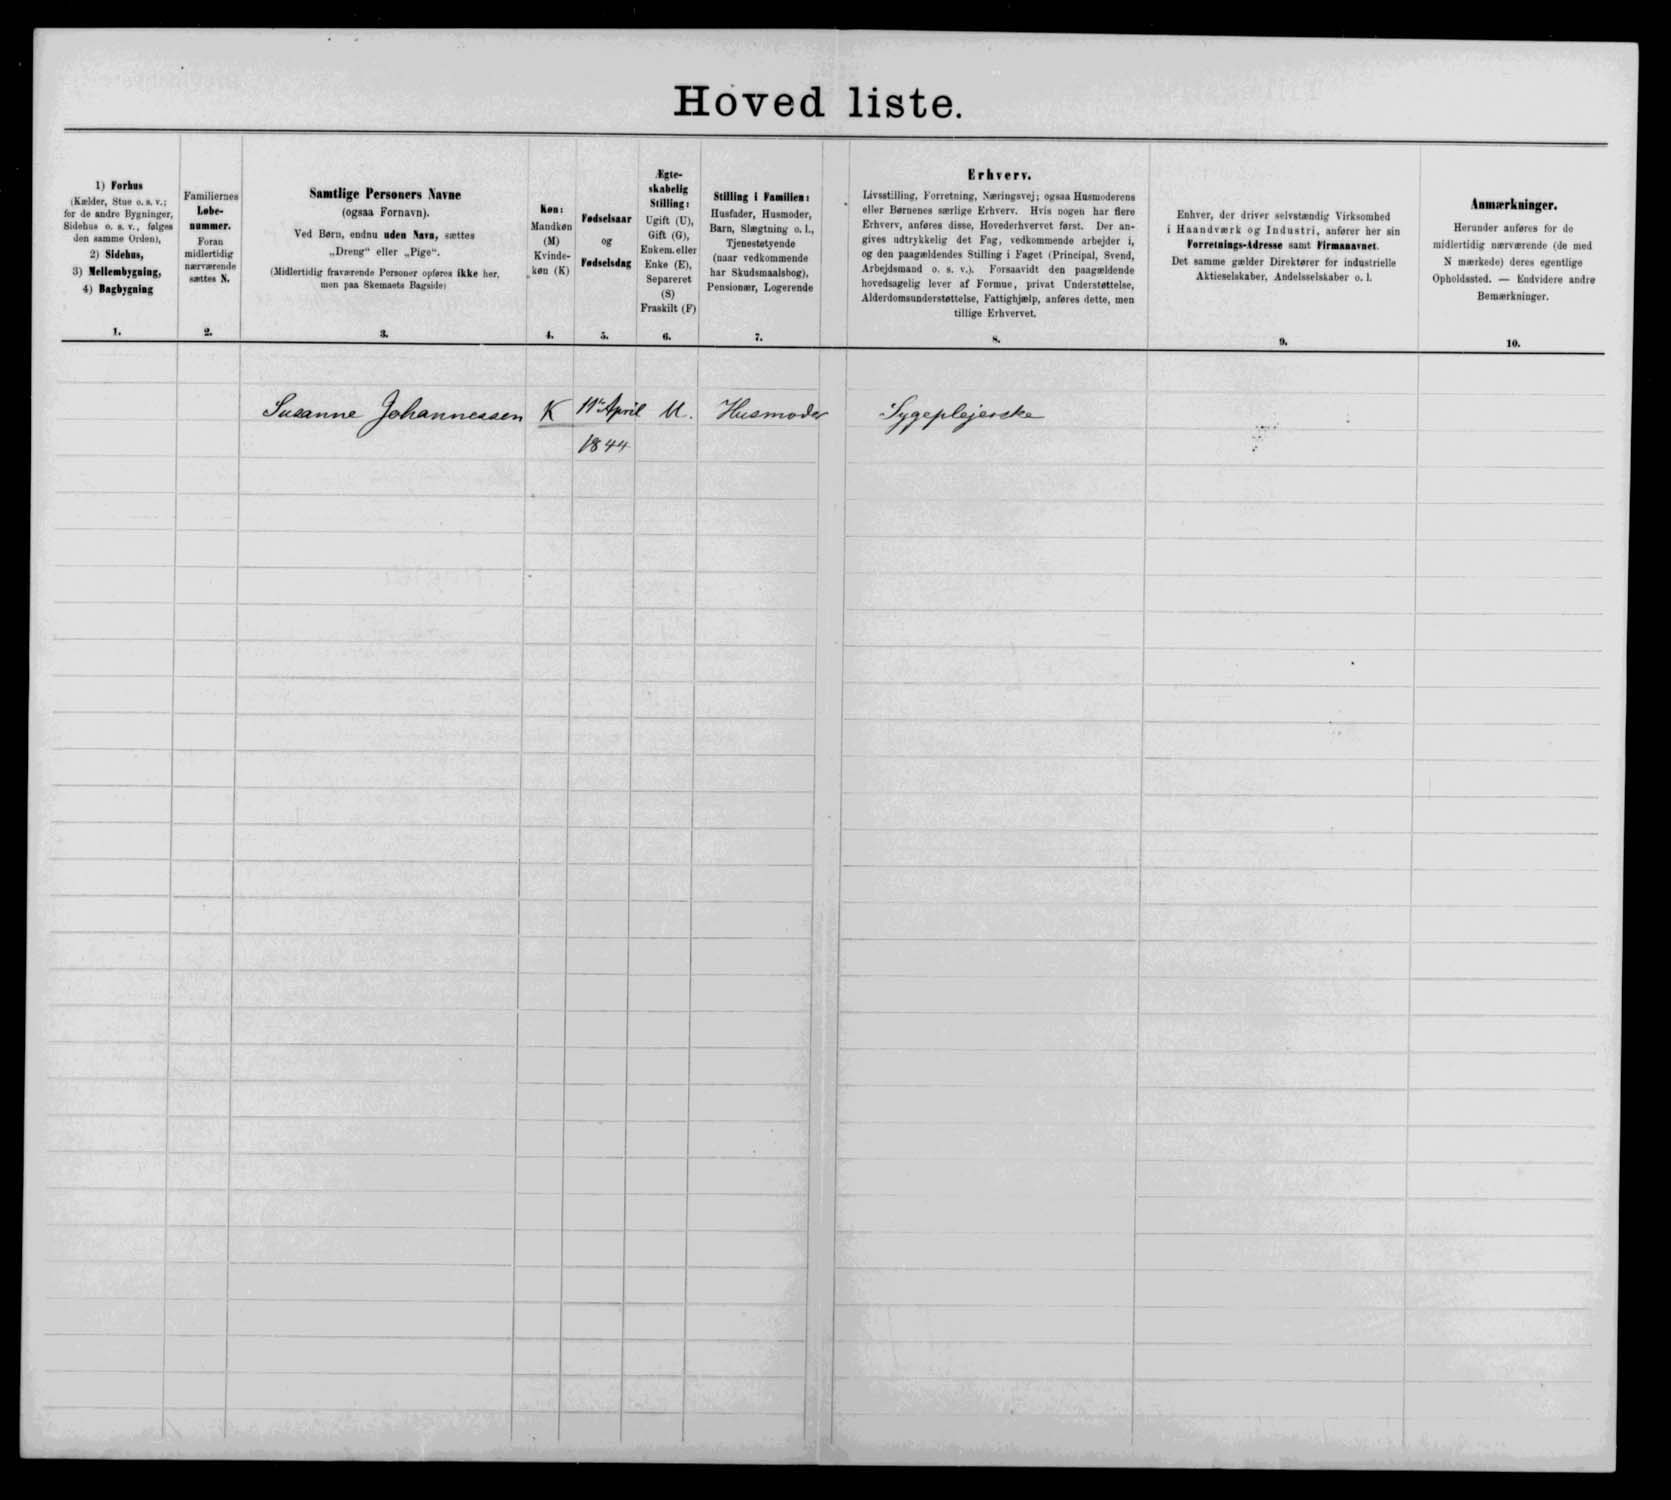 Hoved liste.
1) Forhus
(Kælder, Stue o. s. v.;
for de andre Bygninger,
Sidehus o. s. v., følges
den samme Orden),
2) Sidehus,
3) Mellembygning,
4) Bagbygning
1.
Familiernes
Løbe-
nummer.
Foran
midlertidig
nærværende
sættes N.
2.
Samtlige Personers Navne
(ogsaa Fornavn).
Ved Børn, endnu uden Navn, sættes
„Dreng“ eller „Pige“.
(Midlertidig fraværende Personer opføres ikke her,
men paa Skemaets Bagside)
3.
Køn:
Mandkøn
(M)
Kvinde-
køn (K)
4.
Fødselsaar
og
Fødselsdag
5.
Ægte-
skabelig
Stilling:
Ugift (U),
Gift (G),
Enkem. eller
Enke (E),
Separeret
(S)
Fraskilt (F)
6.
Stilling i Familien:
Husfader, Husmoder,
Barn, Slægtning o. l.,
Tjenestetyende
(naar vedkommende
har Skudsmaalsbog),
Pensionær, Logerende
7.
Erhverv.
Livsstilling, Forretning, Næringsvej; ogsaa Husmoderens
eller Børnenes særlige Erhverv. Hvis nogen har flere
Erhverv, anføres disse, Hovederhvervet først. Der an-
gives udtrykkelig det Fag, vedkommende arbejder i,
og den paagældendes Stilling i Faget (Principal, Svend,
Arbejdsmand o. s. v.). Forsaavidt den paagældende
hovedsagelig lever af Formue, privat Understøttelse,
Alderdomsunderstøttelse, Fattighjælp, anføres dette, men
tillige Erhvervet.
8.
Enhver, der driver selvstændig Virksomhed
i Haandværk og Industri, anfører her sin
Forretnings-Adresse samt Firmanavnet.
Det samme gælder Direktører for industrielle
Aktieselskaber, Andelsselskaber o. l.
9.
Anmærkninger.
Herunder anføres for de
midlertidig nærværende (de med
N mærkede) deres egentlige
Opholdssted. — Endvidere andre
Bemærkninger.
10.
Susanne Johannessen K 11te April U. Husmoder Sygeplejerske
1844